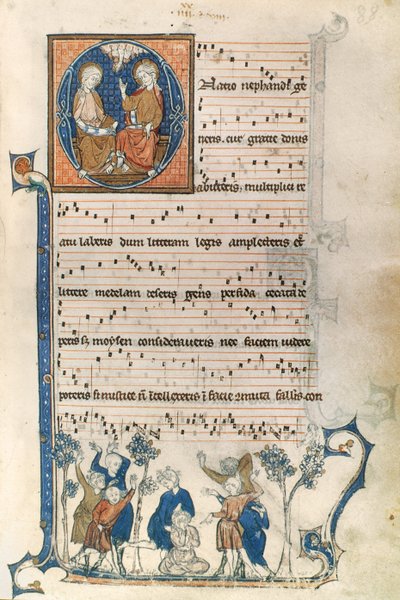 O Natio nephandi ge
neris. cur gratie donis
abuteris, multiplici re
atu laberis dum litteram legis amplecteris et
littere medelam deseris gens perfida cecata de
peris si moysen consideraveris nec faciem videre
poteris si mistice n̄ ītellexeris ī facie falleris con